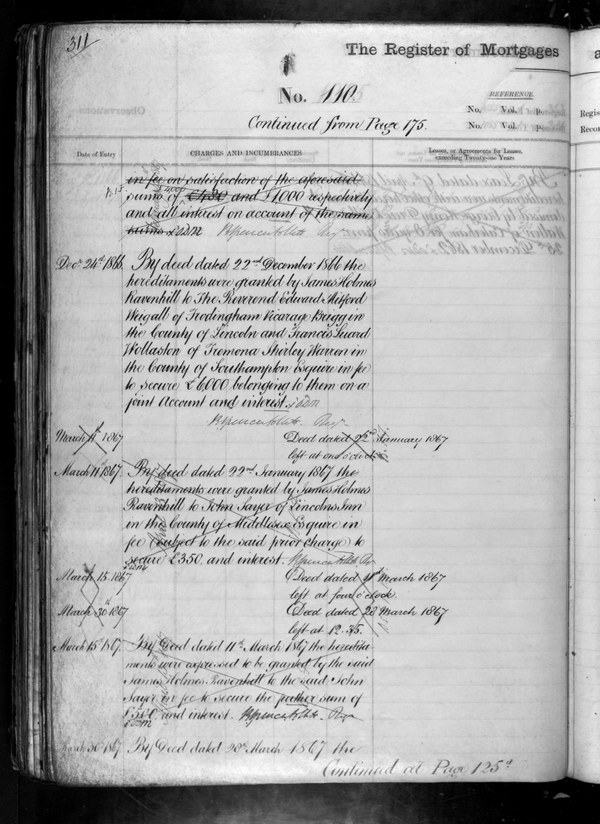 311
The Register of Mortgages
No. 110
REFERENCE.
No. Vol. p.
No. Vol. p.
Continued from Page 175.
Date of Entry
CHARGES AND INCUMBRANCES
Leases, or Agreements for Leases, exceeding Twenty-one Years
in fee on satisfaction of the aforesaid
sums of £480 and £1000 respectively
and all interest on account of the same
sums
Decr 24th 1866.
By deed dated 22nd December 1866 the
hereditaments were granted by James Holmes
Ravenhill to The Reverend Edward Mitford
Weigall of Frodingham Vicarage Brigg in
the County of Lincoln and Francis Luard
Wollaston of Tremona Shirley Warren in
the County of Southampton Esquire in fee
to secure £6000 belonging to them on a
joint Account and interest.
March 11th 1867
Deed dated 22nd January 1867
left at one o'clock
March 11th 1867.
By deed dated 22nd January 1867 the
hereditaments were granted by James Holmes
Ravenhill to John Sayer of Lincolns Inn
in the County of Middlesex Esquire in
fee (subject to the said prior charge) to
secure £350. and interest.
March 15 1867
Deed dated 11th March 1867
left at four o'clock
March 30th 1867
Deed dated 28 March 1867
left at 12.45.
March 15th 1867.
By Deed dated 11th March 1867 the heredita-
ments were expressed to be granted by the said
James Holmes Ravenhill to the said John
Sayer in fee to secure the further sum of
£500 and interest.
March 30th 1867
By Deed dated 28th March 1867 the
Continued at Page 125a